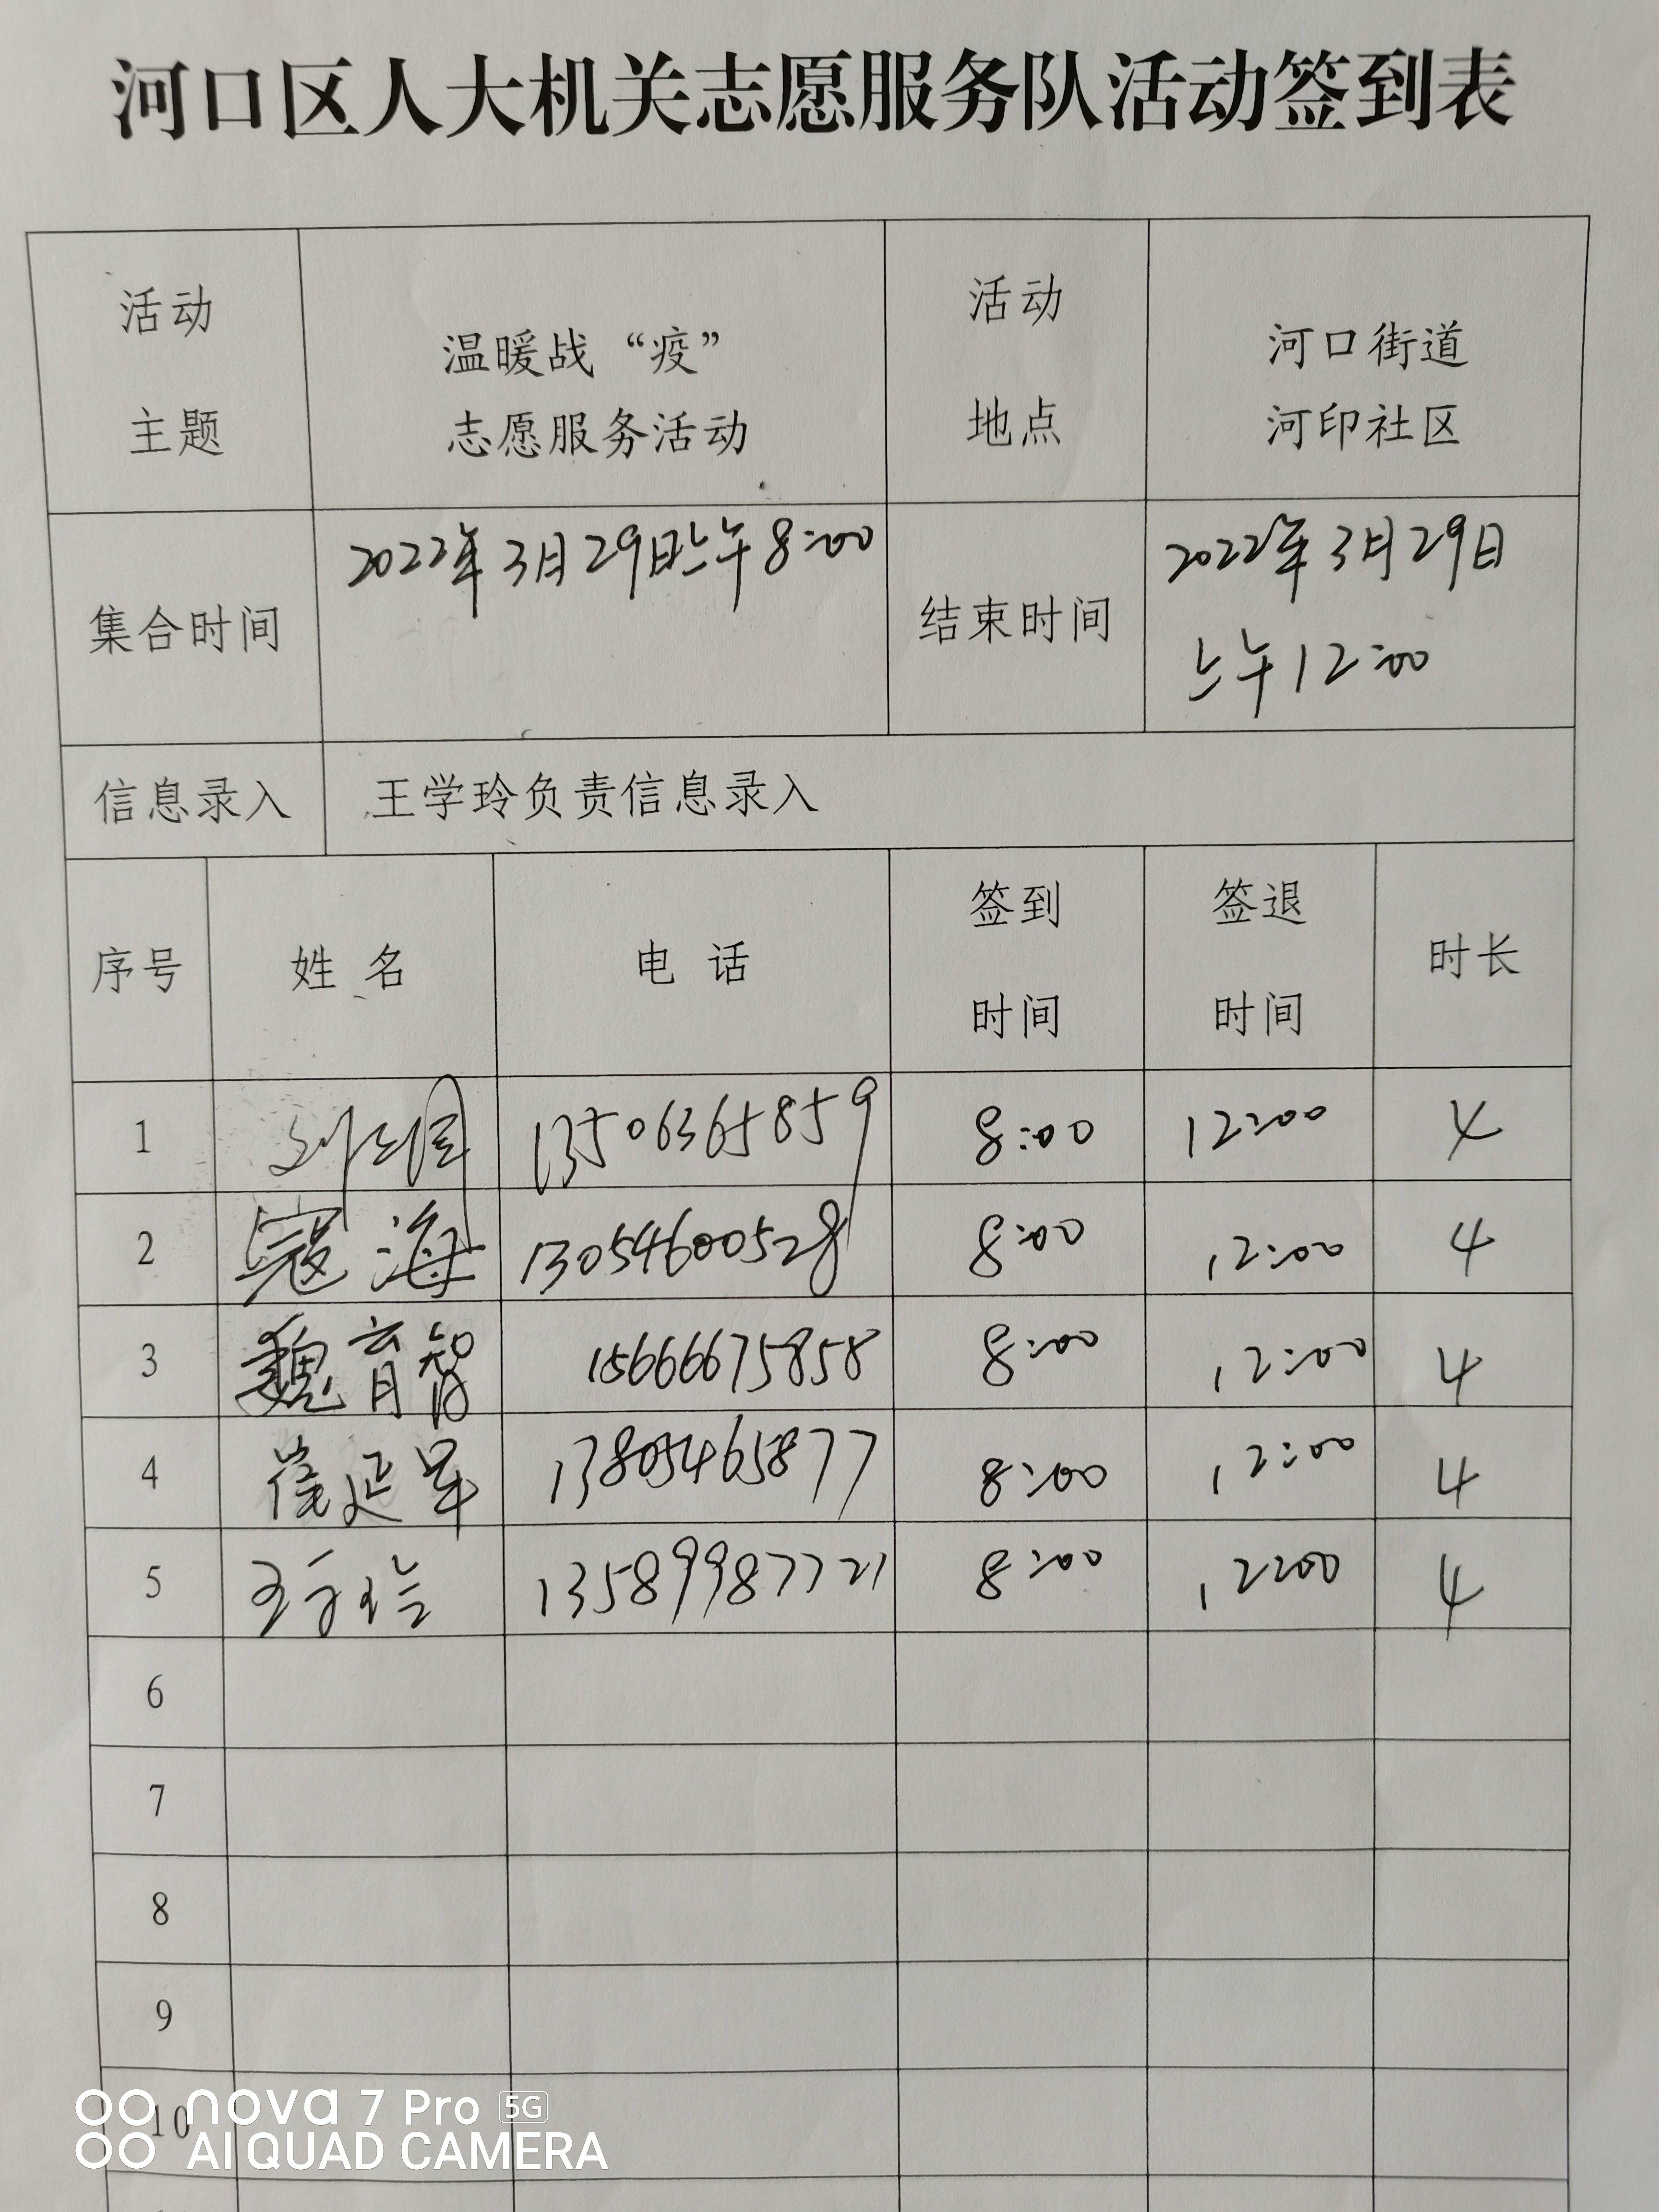 河口区人大机关志愿服务队活动签到表
活动 主题
温暖战“疫”
志愿服务活动
活动 地点
河口街道
河印社区
集合时间
2022年3月29日上午8:00
结束时间
2022年3月29日
上午12:00
信息录入 王学玲负责信息录入
序号 姓名 电话 签到时间 签退时间 时长
1 13506365859 8:00 12:00 4
2 寇海 13054600528 8:00 12:00 4
3 魏育智 15666675858 8:00 12:00 4
4 崔延军 13805465877 8:00 12:00 4
5 王学玲 13589987721 8:00 12:00 4
6
7
8
9
10
nova 7 Pro 5G
AI QUAD CAMERA